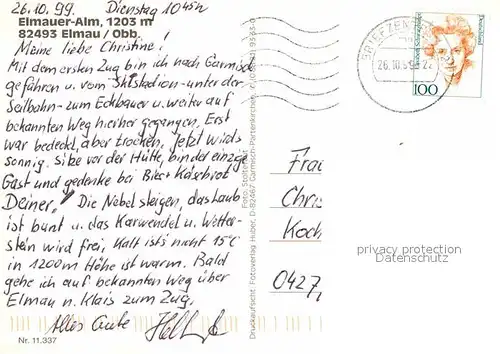 26.10.99. Dienstag 10 45 h
Elmauer-Alm, 1203 m
82493 Elmau / Obb.
Meine liebe Christine!
Mit dem ersten Zug bin ich nach Garmisch
gefahren u. vom Skistadion unter der
Seilbahn zum Eckbauer u. weiter auf
bekannten Weg hierher gegangen. Erst
war bedeckt, aber trocken. Jetzt wird's
sonnig. Sitze vor der Hütte, bin der einzige
Gast und gedenke bei Bier + Käsebrot
Deiner! Die Nebel steigen, das Laub
ist bunt u. das Karwendel u. Wetter-
stein wird frei, kalt ist's nicht 15°C
in 1200 m Höhe ist warm. Bald
gehe ich auf bekannten Weg über
Elmau n. Klais zum Zug.
Alles Gute
Nr. 11.337
Foto: Stolterfoht
Druckaufsicht: Fotoverlag Huber, D-82467 Garmisch-Partenkirchen
BRIEFZENTRUM
26.10.99
Deutschland
100
Frau
Chri
Koch
0427
privacy protection
Datenschutz